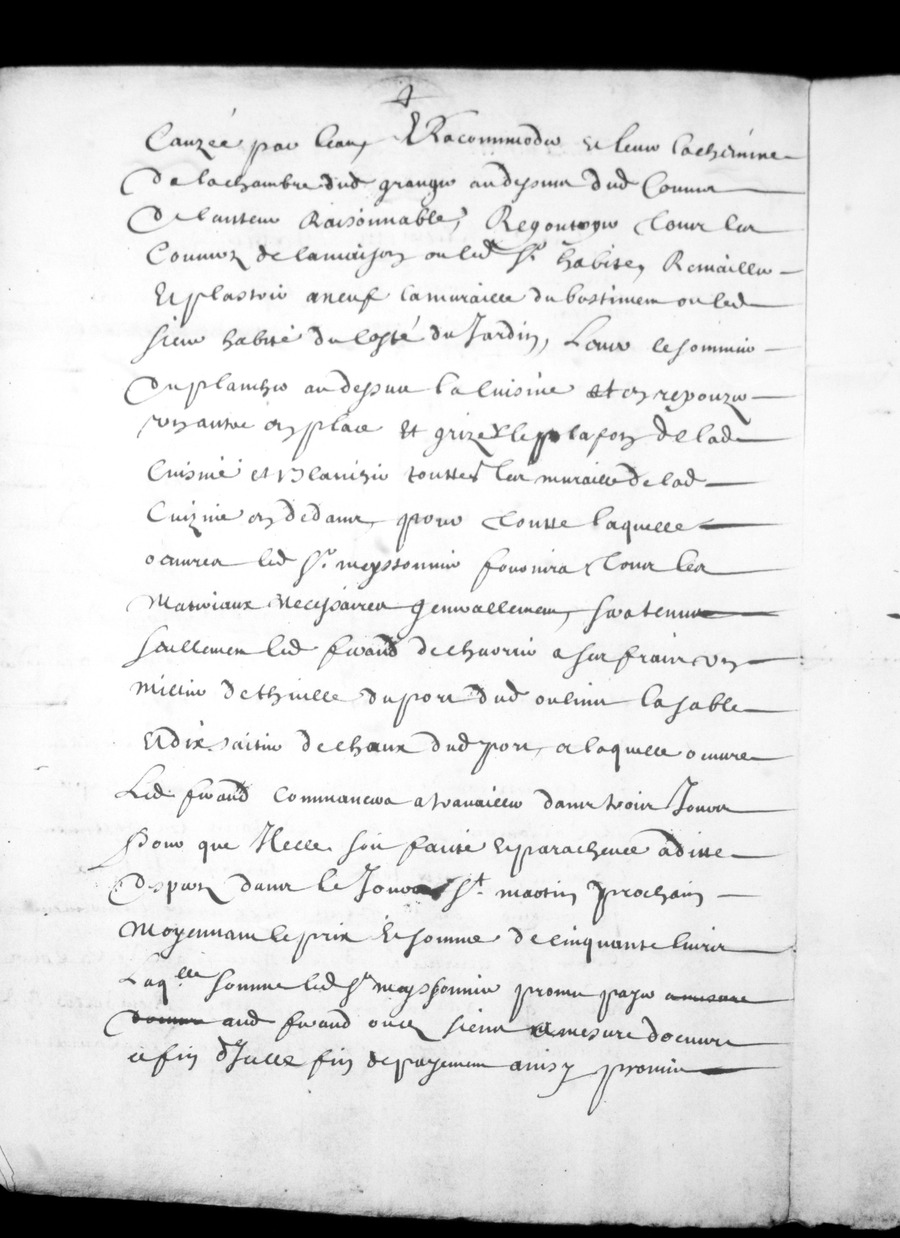 cauzée par leau, Et Racommoder et lever la cheminee
de la chambre dud granger au dessus dud Couver
de lauteur Raisonnable, Regouttoyer tous les
Couvers de la maison ou led Sr habite, Remailler
Et plastrir a neuf la muraille du bastiment ou led
sieur habite du costé du Jardin, Lever le sommier
du plancher au dessus la cuisine et en repouzer
un autre en place Et grizer le plafon de lad
Cuisine et blanchir touttes les muraille de lad
Cuizine en dedans, pour toutte laquelle
oeuvres led Sr. meyssonnier fournira tous les
Materiaux necessaires generallement, sera tenu
seullement led feraud de charrier a ses frais un
millier de thuille du port dud oulins la sable
Et dix de chaux dud port, a laquelle oeuvre
Led feraud commancera a travailler dans trois Jours
pour que Icelle soit faitte Et parachevee a ditte
despers dans le Jour St. martin prochain
Moyennant le prix Et somme de cinquante livres
Laqlle somme led Sr meyssonnier promet payer a mesure
doeuvre aud feraud ou es siens a mesure doeuvre
et fin dicelle fin de payement ainsy promis